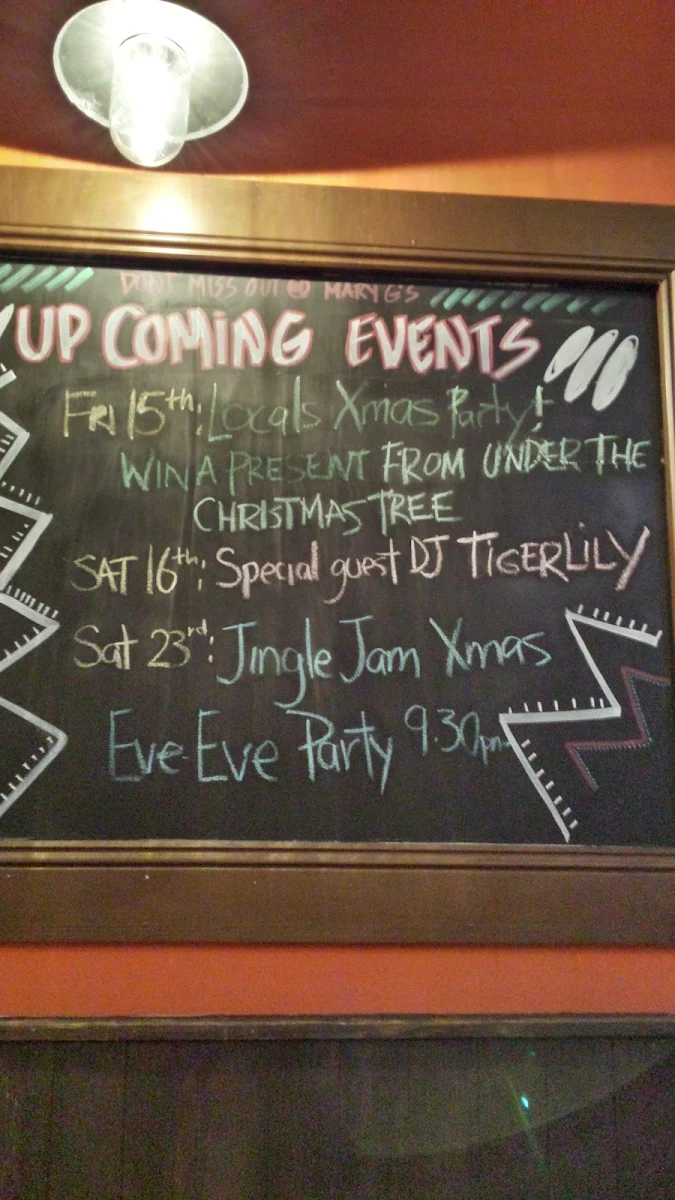 DONT MISS OUT @ MARY G'S
UP COMING EVENTS
FRI 15th: Locals Xmas Party!
WIN A PRESENT FROM UNDER THE
CHRISTMAS TREE
SAT 16th: Special guest DJ TIGERLILY
Sat 23rd: Jingle Jam Xmas
Eve-Eve Party 9.30pm